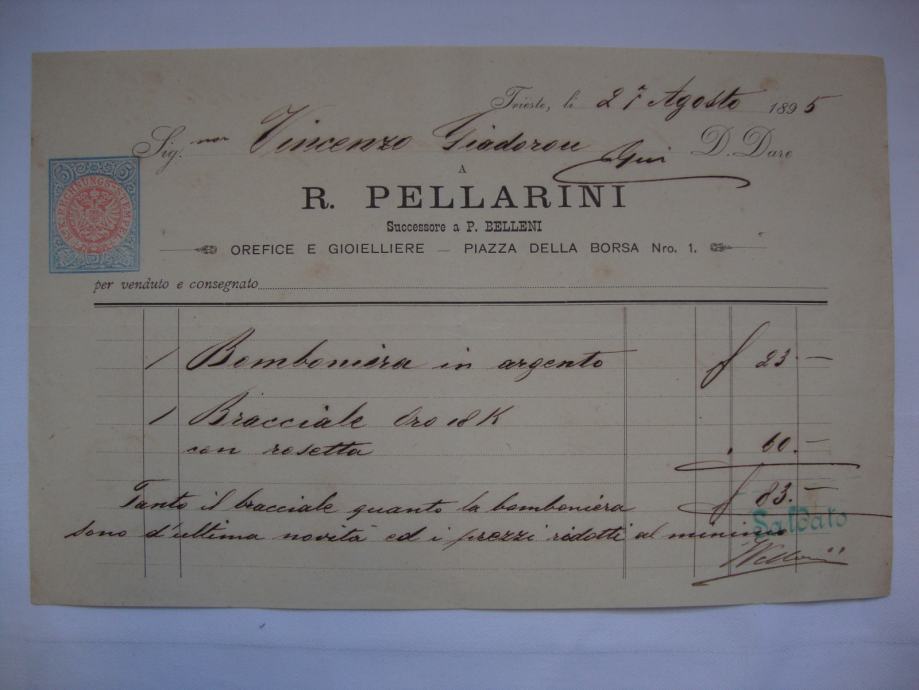 Trieste, li 27 Agosto 1895
Sig.nor Vincenzo Giadorou Qui D. Dare
A
R. PELLARINI
Successore a P. BELLENI
OREFICE E GIOIELLIERE — PIAZZA DELLA BORSA Nro. 1.
5 5
RECHNUNGS-STEMPEL
per venduto e consegnato
1 Bomboniera in argento f 23.—
1 Bracciale Oro 18 K
con rosetta . 60.—
f 83.—
Tanto il bracciale quanto la bomboniera
Saldato
sono d'ultima novità ed i prezzi ridotti al minimo